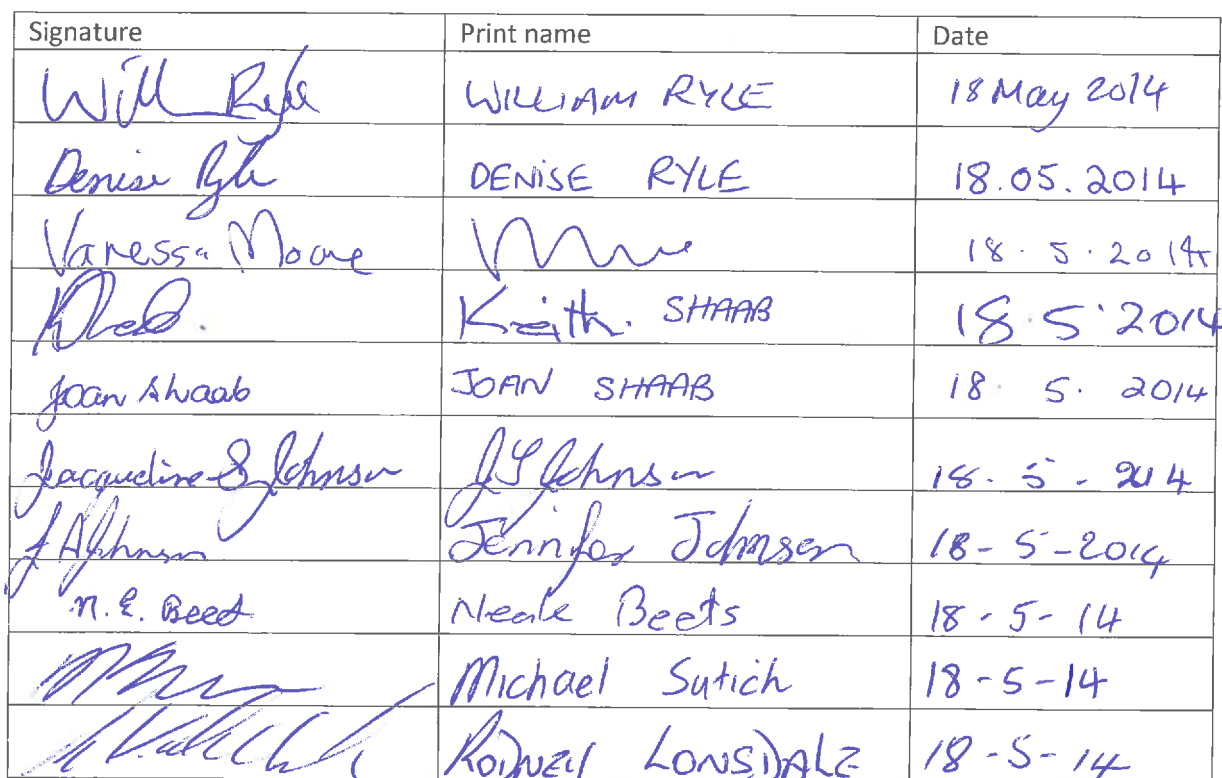 Signature Print name Date
Will Ryle WILLIAM RYLE 18 May 2014
Denise Ryle DENISE RYLE 18.05.2014
Vanessa Moore 18.5.2014
Keith. SHAAB 18.5.2014
Joan Shaab JOAN SHAAB 18. 5. 2014
Jacqueline S Johnson J S Johnson 18. 5 - 2014
J A Johnson Jennifer Johnson 18-5-2014
N.E. Beets Neale Beets 18-5-14
Michael Sutich 18-5-14
RODNEY LONSDALE 18-5-14